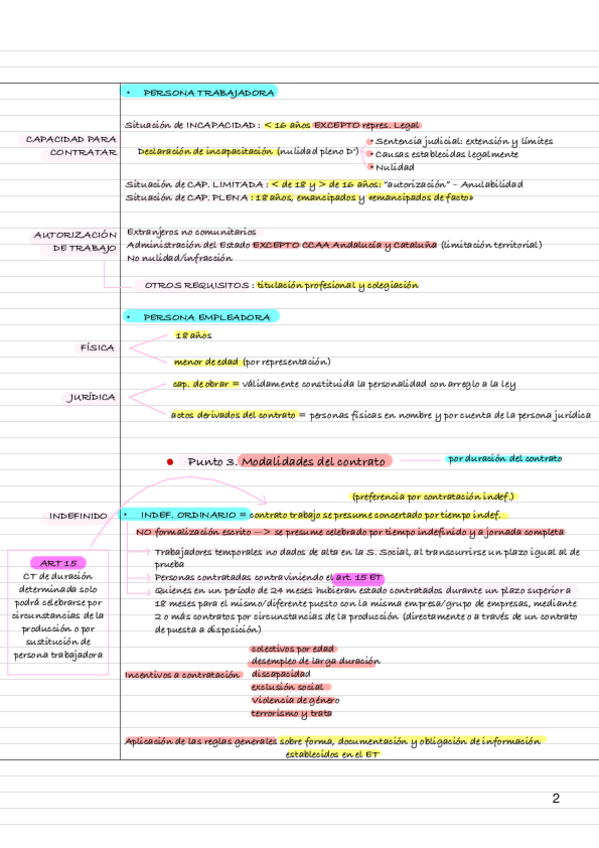 • PERSONA TRABAJADORA
CAPACIDAD PARA
CONTRATAR
Situación de INCAPACIDAD : < 16 años EXCEPTO repres. Legal
Declaración de incapacitación (nulidad pleno Dº)
• Sentencia judicial: extensión y límites
• Causas establecidas legalmente
• Nulidad
Situación de CAP. LIMITADA : < de 18 y > de 16 años: "autorización" – Anulabilidad
Situación de CAP. PLENA : 18 años, emancipados y «emancipados de facto»
AUTORIZACIÓN
DE TRABAJO
Extranjeros no comunitarios
Administración del Estado EXCEPTO CCAA Andalucía y Cataluña (limitación territorial)
No nulidad/infracción
OTROS REQUISITOS : titulación profesional y colegiación
• PERSONA EMPLEADORA
FÍSICA
18 años
menor de edad (por representación)
JURÍDICA
cap. de obrar = válidamente constituida la personalidad con arreglo a la ley
actos derivados del contrato = personas físicas en nombre y por cuenta de la persona jurídica
• Punto 3. Modalidades del contrato
por duración del contrato
(preferencia por contratación indef.)
INDEFINIDO
• INDEF. ORDINARIO = contrato trabajo se presume concertado por tiempo indef.
NO formalización escrito —> se presume celebrado por tiempo indefinido y a jornada completa
Trabajadores temporales no dados de alta en la S. Social, al transcurrirse un plazo igual al de
prueba
Personas contratadas contraviniendo el art. 15 ET
Quienes en un período de 24 meses hubieran estado contratados durante un plazo superior a
18 meses para el mismo/diferente puesto con la misma empresa/grupo de empresas, mediante
2 o más contratos por circunstancias de la producción (directamente o a través de un contrato
de puesta a disposición)
ART 15
CT de duración
determinada solo
podrá celebrarse por
circunstancias de la
producción o por
sustitución de
persona trabajadora
Incentivos a contratación
colectivos por edad
desempleo de larga duración
discapacidad
exclusión social
Violencia de género
terrorismo y trata
Aplicación de las reglas generales sobre forma, documentación y obligación de información
establecidos en el ET
2